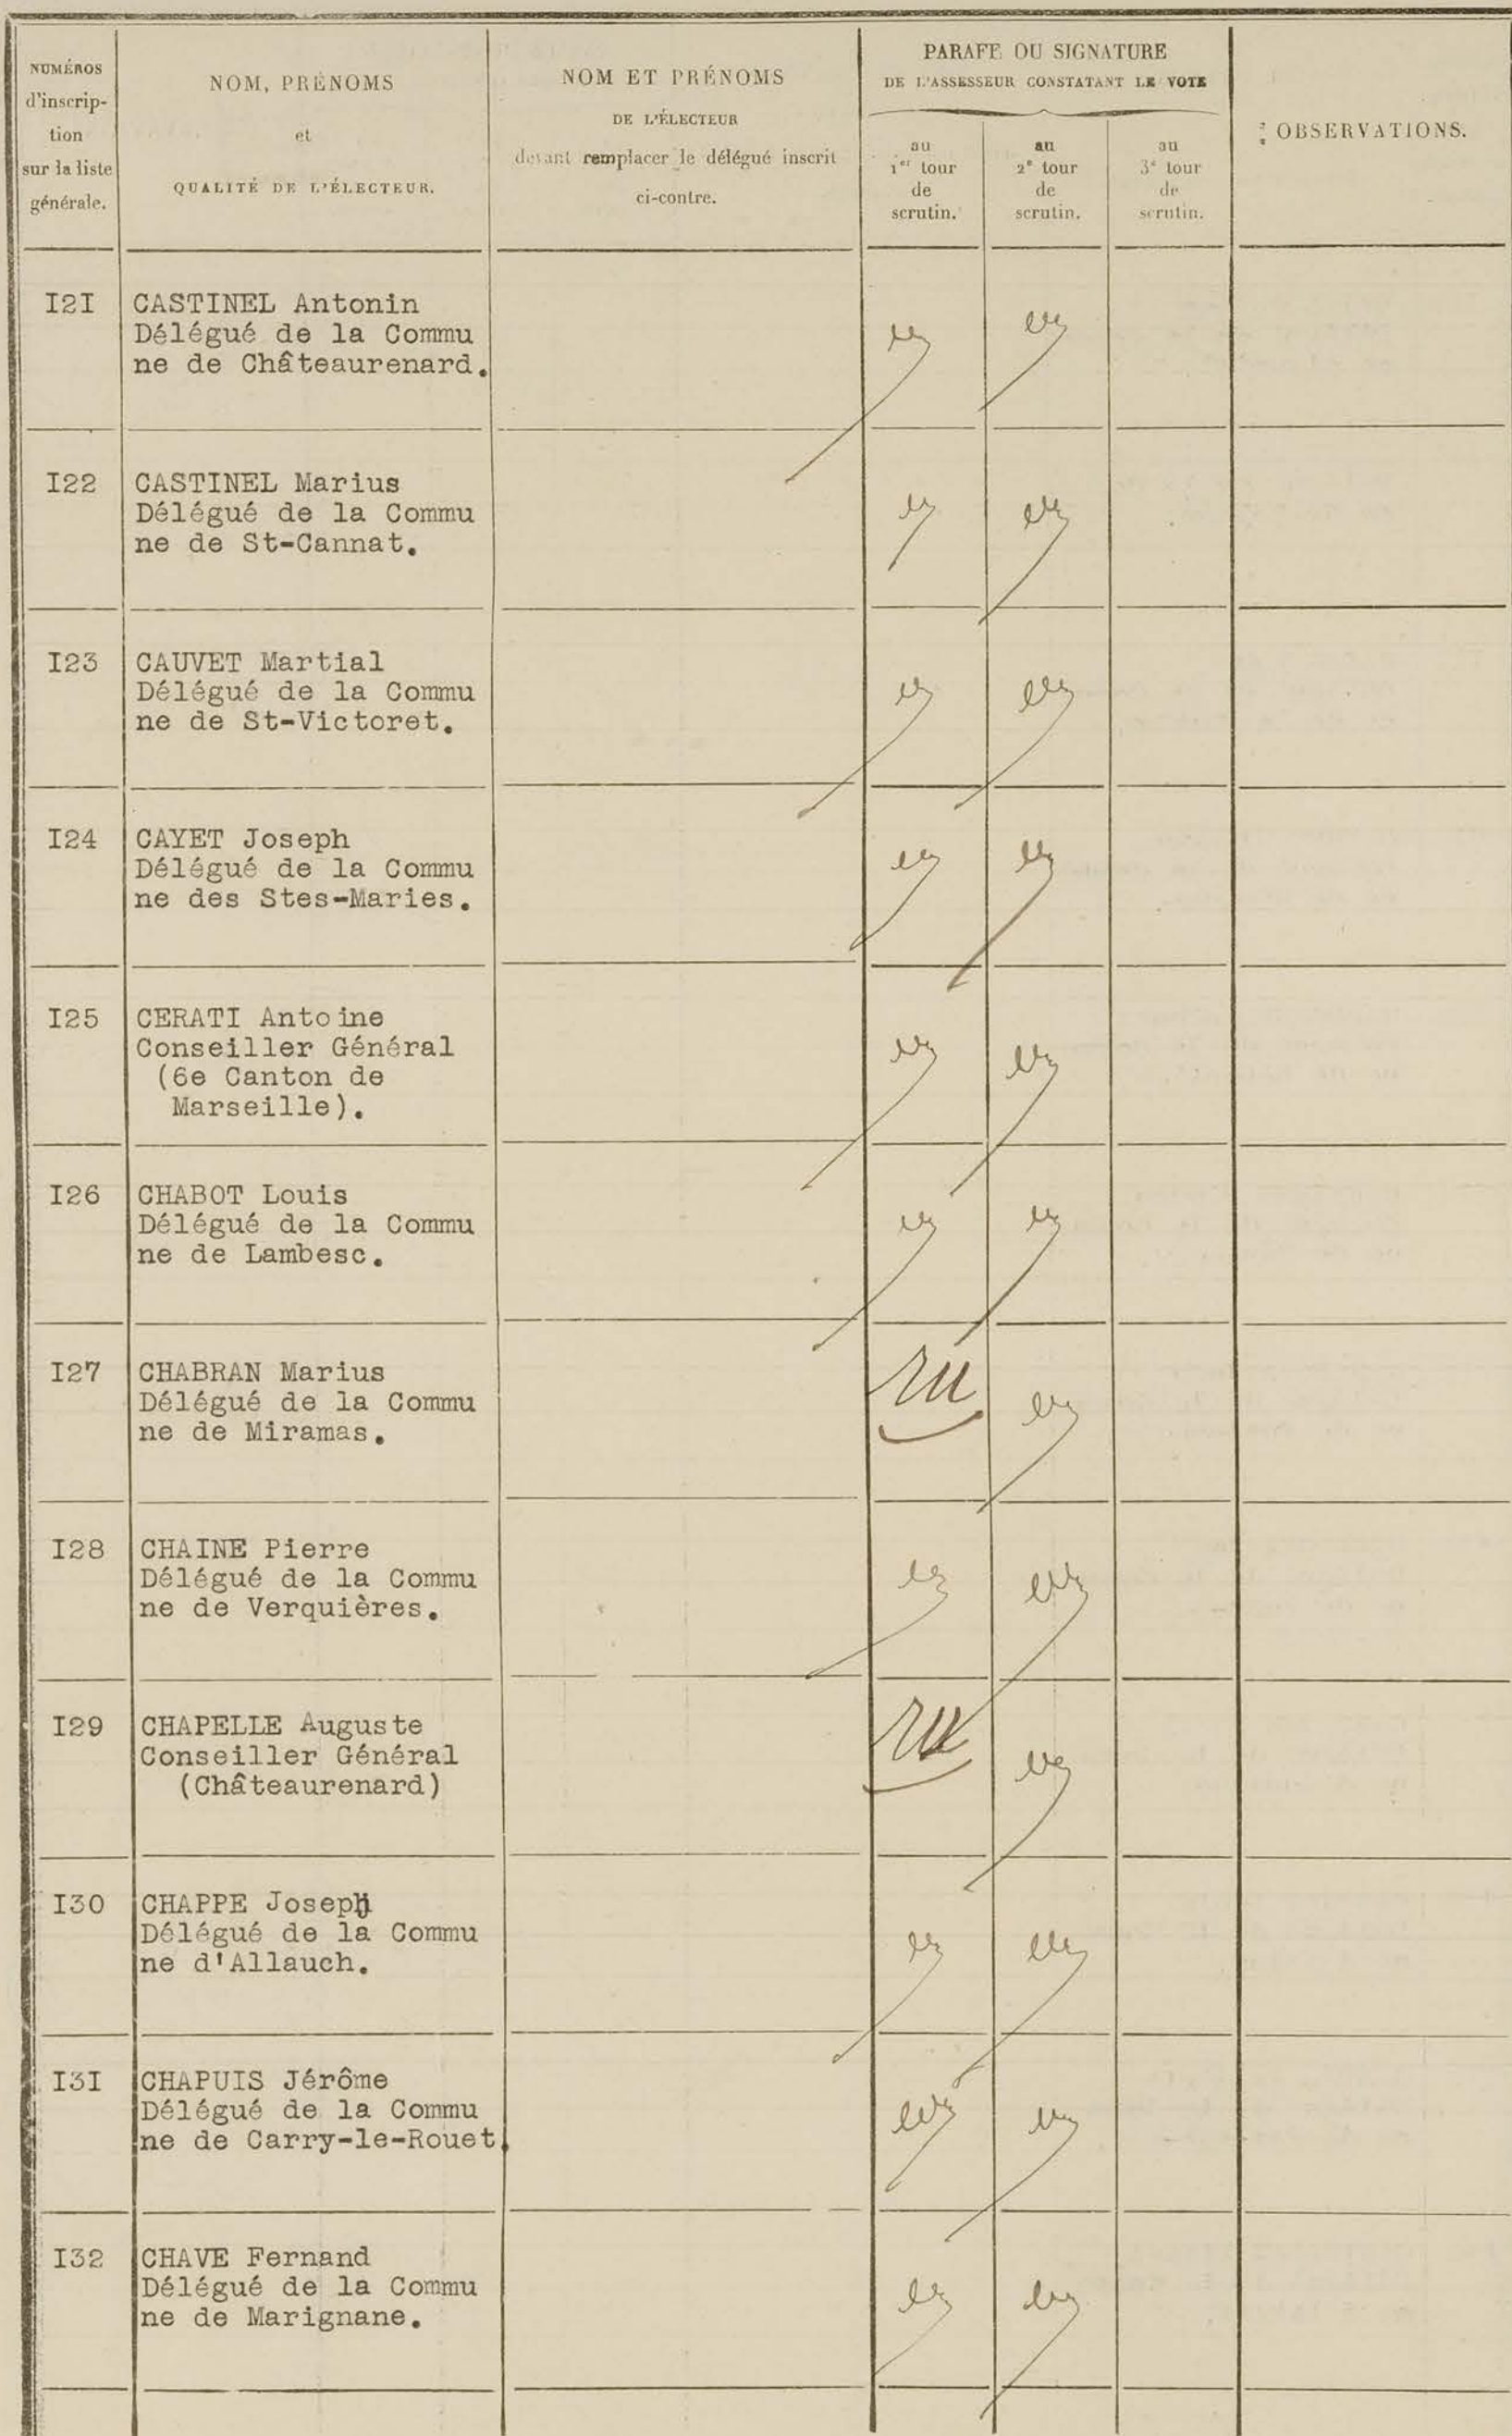 NUMÉROS
d'inscrip-
tion
sur la liste
générale.
NOM, PRÉNOMS
et
QUALITÉ DE L'ÉLECTEUR.
NOM ET PRÉNOMS
DE L'ÉLECTEUR
devant remplacer le délégué inscrit
ci-contre.
PARAFE OU SIGNATURE
DE L'ASSESSEUR CONSTATANT LE VOTE
au
1er tour
de
scrutin.
au
2e tour
de
scrutin.
au
3e tour
de
scrutin.
OBSERVATIONS.
I2I CASTINEL Antonin
Délégué de la Commu
ne de Châteaurenard.
I22 CASTINEL Marius
Délégué de la Commu
ne de St-Cannat.
I23 CAUVET Martial
Délégué de la Commu
ne de St-Victoret.
I24 CAYET Joseph
Délégué de la Commu
ne des Stes-Maries.
I25 CERATI Antoine
Conseiller Général
(6e Canton de
Marseille).
I26 CHABOT Louis
Délégué de la Commu
ne de Lambesc.
I27 CHABRAN Marius
Délégué de la Commu
ne de Miramas.
I28 CHAINE Pierre
Délégué de la Commu
ne de Verquières.
I29 CHAPELLE Auguste
Conseiller Général
(Châteaurenard)
I30 CHAPPE Joseph
Délégué de la Commu
ne d'Allauch.
I3I CHAPUIS Jérôme
Délégué de la Commu
ne de Carry-le-Rouet.
I32 CHAVE Fernand
Délégué de la Commu
ne de Marignane.